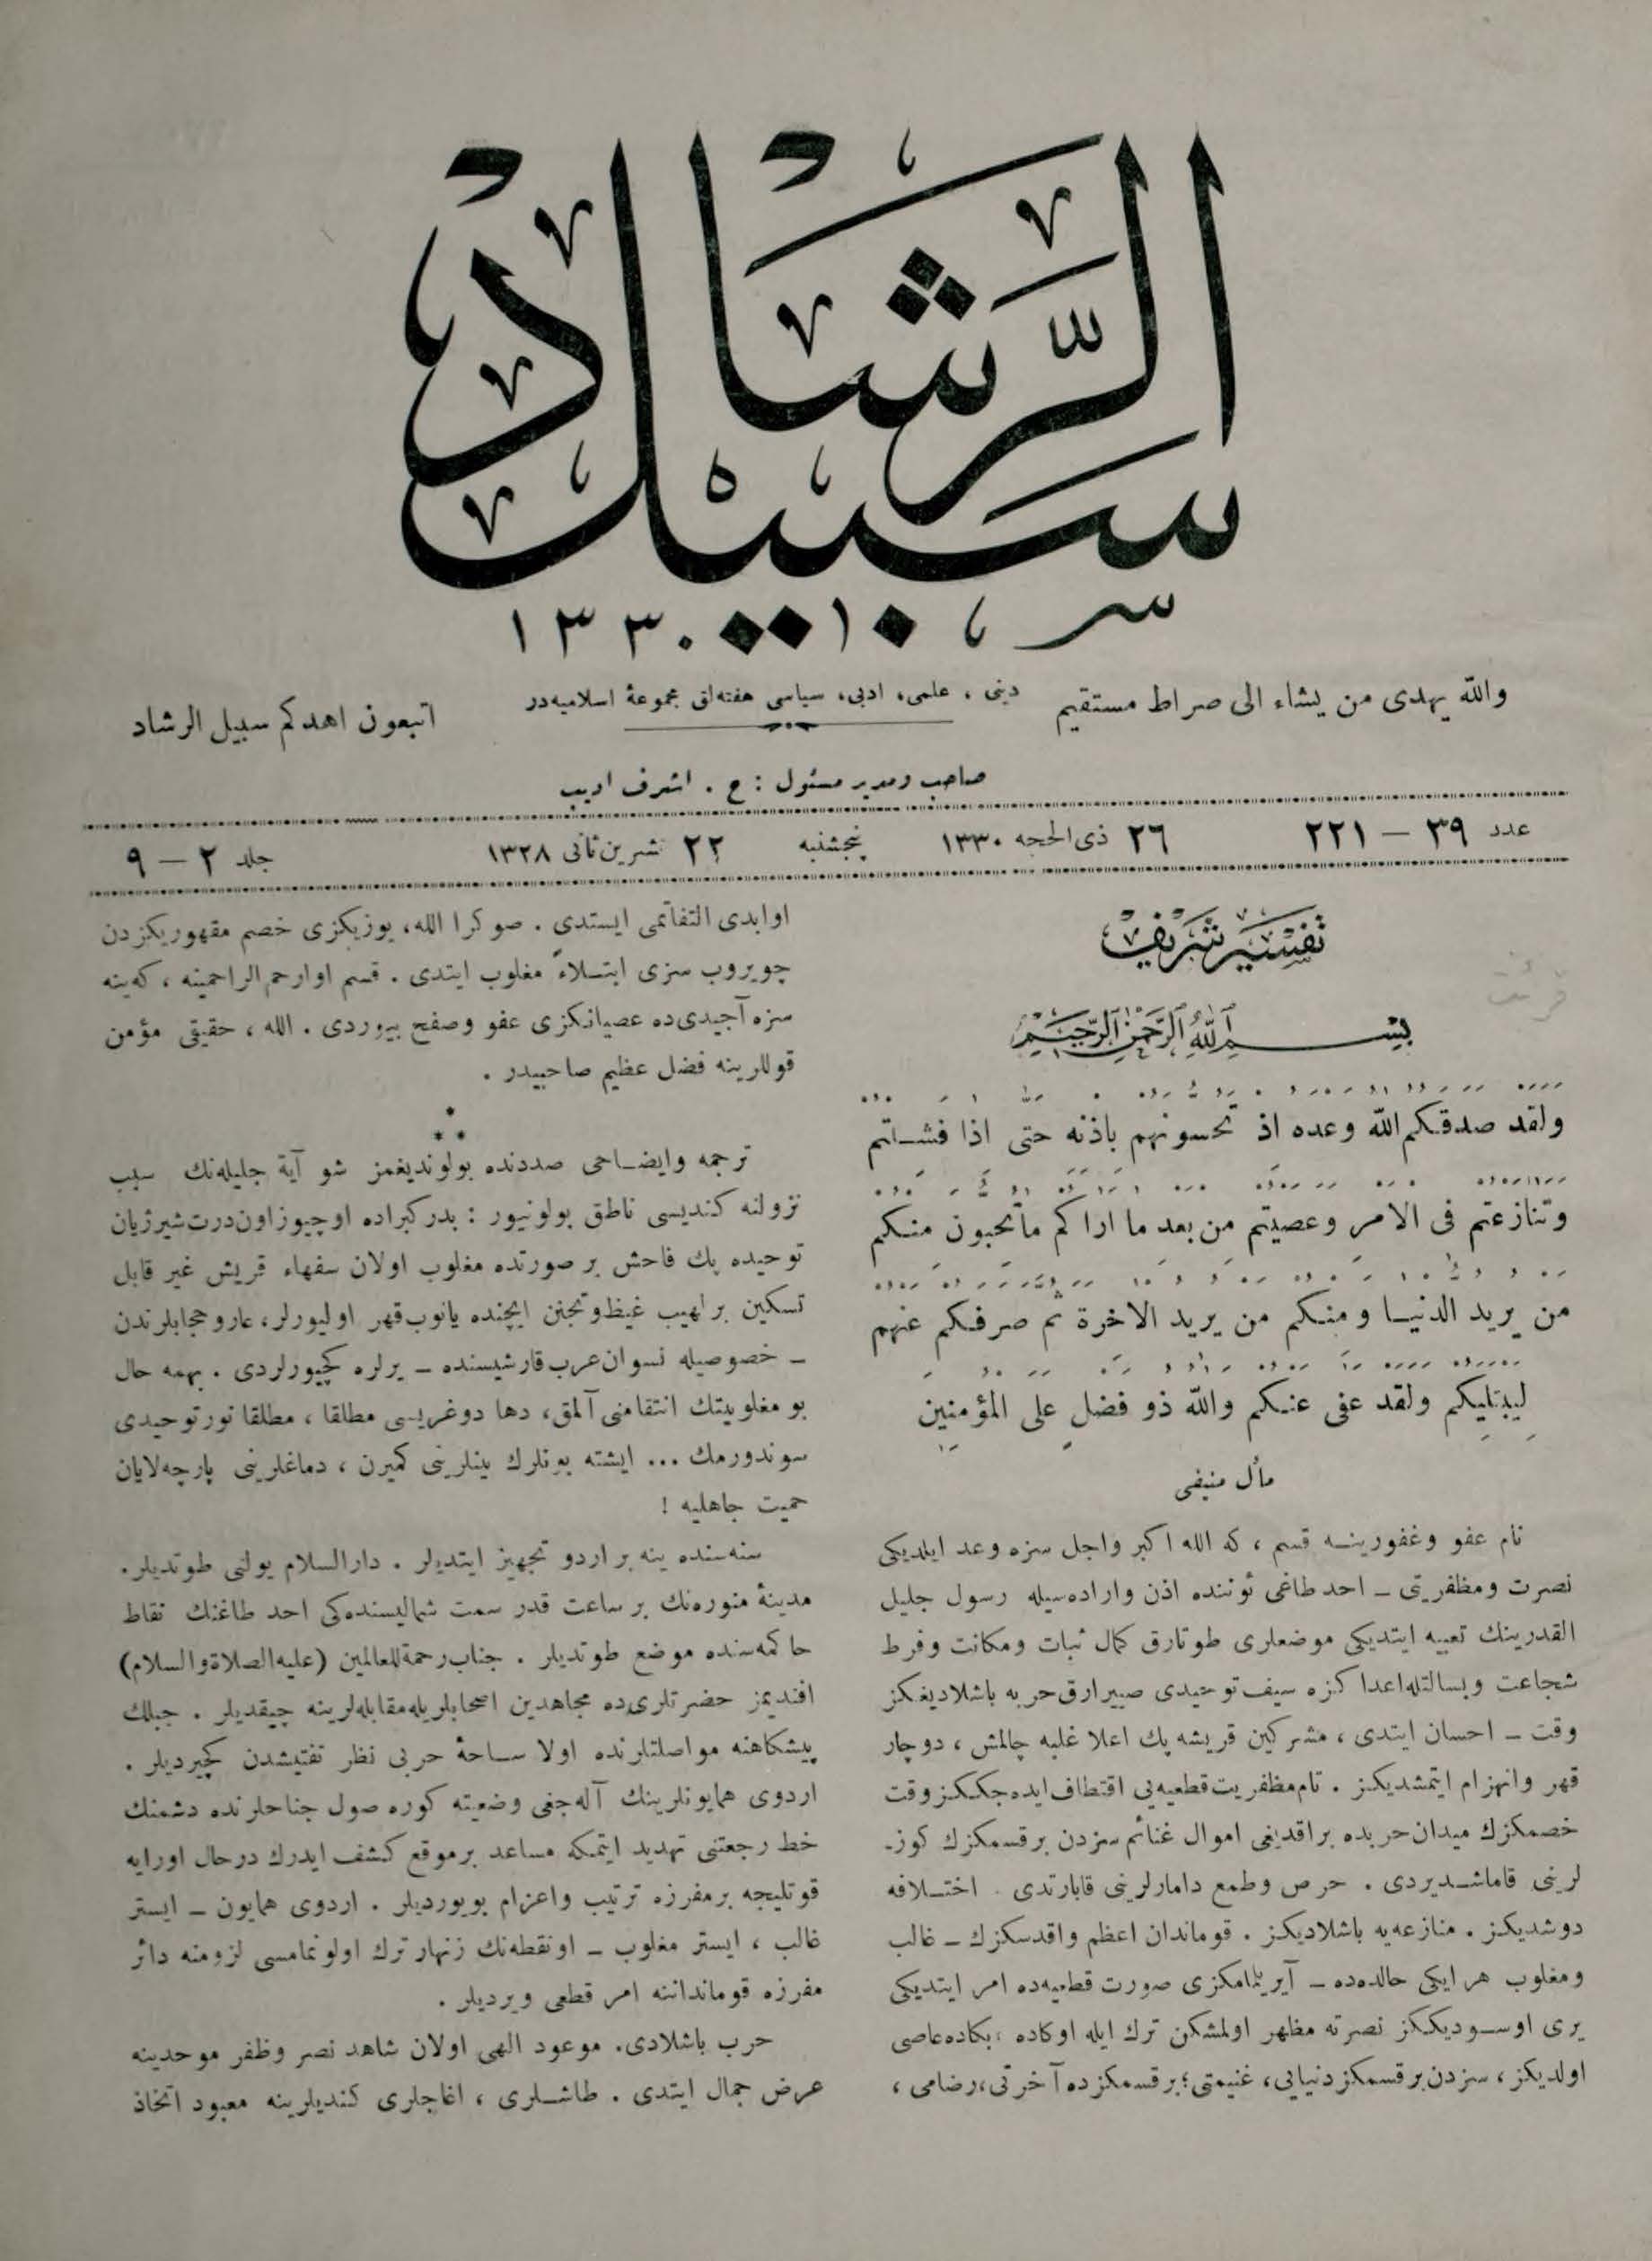 سبيل الرشاد
١٣٣٠
والله يهدى من يشاء الى صراط مستقيم
دينى ، علمى ، ادبى ، سياسى هفته‌لق مجموعهٔ اسلاميه‌در
اتبعون اهدكم سبيل الرشاد
صاحب ومدير مسئول : ح . اشرف اديب
عدد ٣٩ – ٢٢١
٢٦ ذى الحجه ١٣٣٠ پنجشنبه ٢٢ تشرين ثانى ١٣٢٨
جلد ٢ – ٩
تفسير شريف
بسم الله الرحمن الرحيم
ولقد صدقكم الله وعده اذ تحسونهم باذنه حتى اذا فشلتم
وتنازعتم فى الامر وعصيتم من بعد ما اراكم ماتحبون منكم
من يريد الدنيا ومنكم من يريد الاخرة ثم صرفكم عنهم
ليبتليكم ولقد عفى عنكم والله ذو فضل على المؤمنين
مآل منيفى
نام عفو وغفورينه قسم ، كه الله اكبر واجل سزه وعد ايلديكى
نصرت ومظفريتى – احد طاغى ئوننده اذن واراده‌سيله رسول جليل
القدرينك تعبيه ايتديكى موضعلرى طوتارق كمال ثبات ومكانت وفرط
شجاعت وبسالتله اعداكزه سيف توحيدى صييرارق حربه باشلاديغكز
وقت – احسان ايتدى ، مشركين قريشه پك اعلا غلبه چالمش ، دوچار
قهر وانهزام ايتمشديكز . تام مظفريت قطعيه‌يى اقتطاف ايده‌جككز وقت
خصمكزك ميدان حربده براقديغى اموال غنائم سزدن بر قسمكزك كوز-
لرينى قاماشديردى . حرص وطمع دامارلرينى قابارتدى . اختلافه
دوشديكز . منازعه‌يه باشلاديكز . قوماندان اعظم واقدسكزك – غالب
ومغلوب هر ايكى حالده‌ده – آيريلمامكزى صورت قطعيه‌ده امر ايتديكى
يرى اوسوديككز نصرته مظهر اولمشكن ترك ايله اوكاده ، بكاده عاصى
اولديكز ، سزدن بر قسمكز دنيايى ، غنيمتى ؛ بر قسمكزده آخرتى ، رضامى ،
اوابدى التفاتمى ايستدى . صوكرا الله ، يوزيكزى خصم مقهوريكزدن
چويروب سزى ابتلاءً مغلوب ايتدى . قسم اوارحم الراحمينه ، كه ينه
سزه آجيدى‌ده عصيانكزى عفو وصفح بيوردى . الله ، حقيقى مؤمن
قوللرينه فضل عظيم صاحبيدر .
* * *
ترجمه وايضاحى صددنده بولونديغمز شو آية جليله‌نك سبب
نزولنه كنديسى ناطق بولونيور : بدر كبراده اوچيوز اون درت شير ژيان
توحيده پك فاحش بر صورتده مغلوب اولان سفهاء قريش غير قابل
تسكين بر لهيب غيظ وتجنن ايچنده يانوب قهر اوليورلر ، عار و حجابلرندن
– خصوصيله نسوان عرب قارشيسنده – يرلره كچيورلردى . بهمه حال
بو مغلوبيتك انتقامنى آلمق ، دها دوغريسى مطلقا ، مطلقا نور توحيدى
سوندورمك ... ايشته بونلرك بينلرينى كميرن ، دماغلرينى پارچه‌لايان
حميت جاهليه !
سنه‌سنده ينه بر اردو تجهيز ايتديلر . دارالسلام يولنى طوتديلر .
مدينهٔ منوره‌نك بر ساعت قدر سمت شماليسنده‌كى احد طاغنك نقاط
حاكمه‌سنده موضع طوتديلر . جناب رحمة للعالمين (عليه الصلاة والسلام)
افنديمز حضرتلرى‌ده مجاهدين اصحابلريله مقابله‌لرينه چيقديلر . جبلك
پيشكاهنه مواصلتلرنده اولا ساحهٔ حربى نظر تفتيشدن كچيرديلر .
اردوى همايونلرينك آله‌جغى وضعيته كوره صول جناحلرنده دشمنك
خط رجعتنى تهديد ايتمكه مساعد بر موقع كشف ايدرك درحال اورايه
قوتليجه بر مفرزه ترتيب واعزام بويورديلر . اردوى همايون – ايستر
غالب ، ايستر مغلوب – او نقطه‌نك زنهار ترك اولونمامسى لزومنه دائر
مفرزه قوماندانه امر قطعى ويرديلر .
حرب باشلادى . موعود الهى اولان شاهد نصر وظفر موحدينه
عرض جمال ايتدى . طاشلرى ، اغاجلرى كنديلرينه معبود اتخاذ